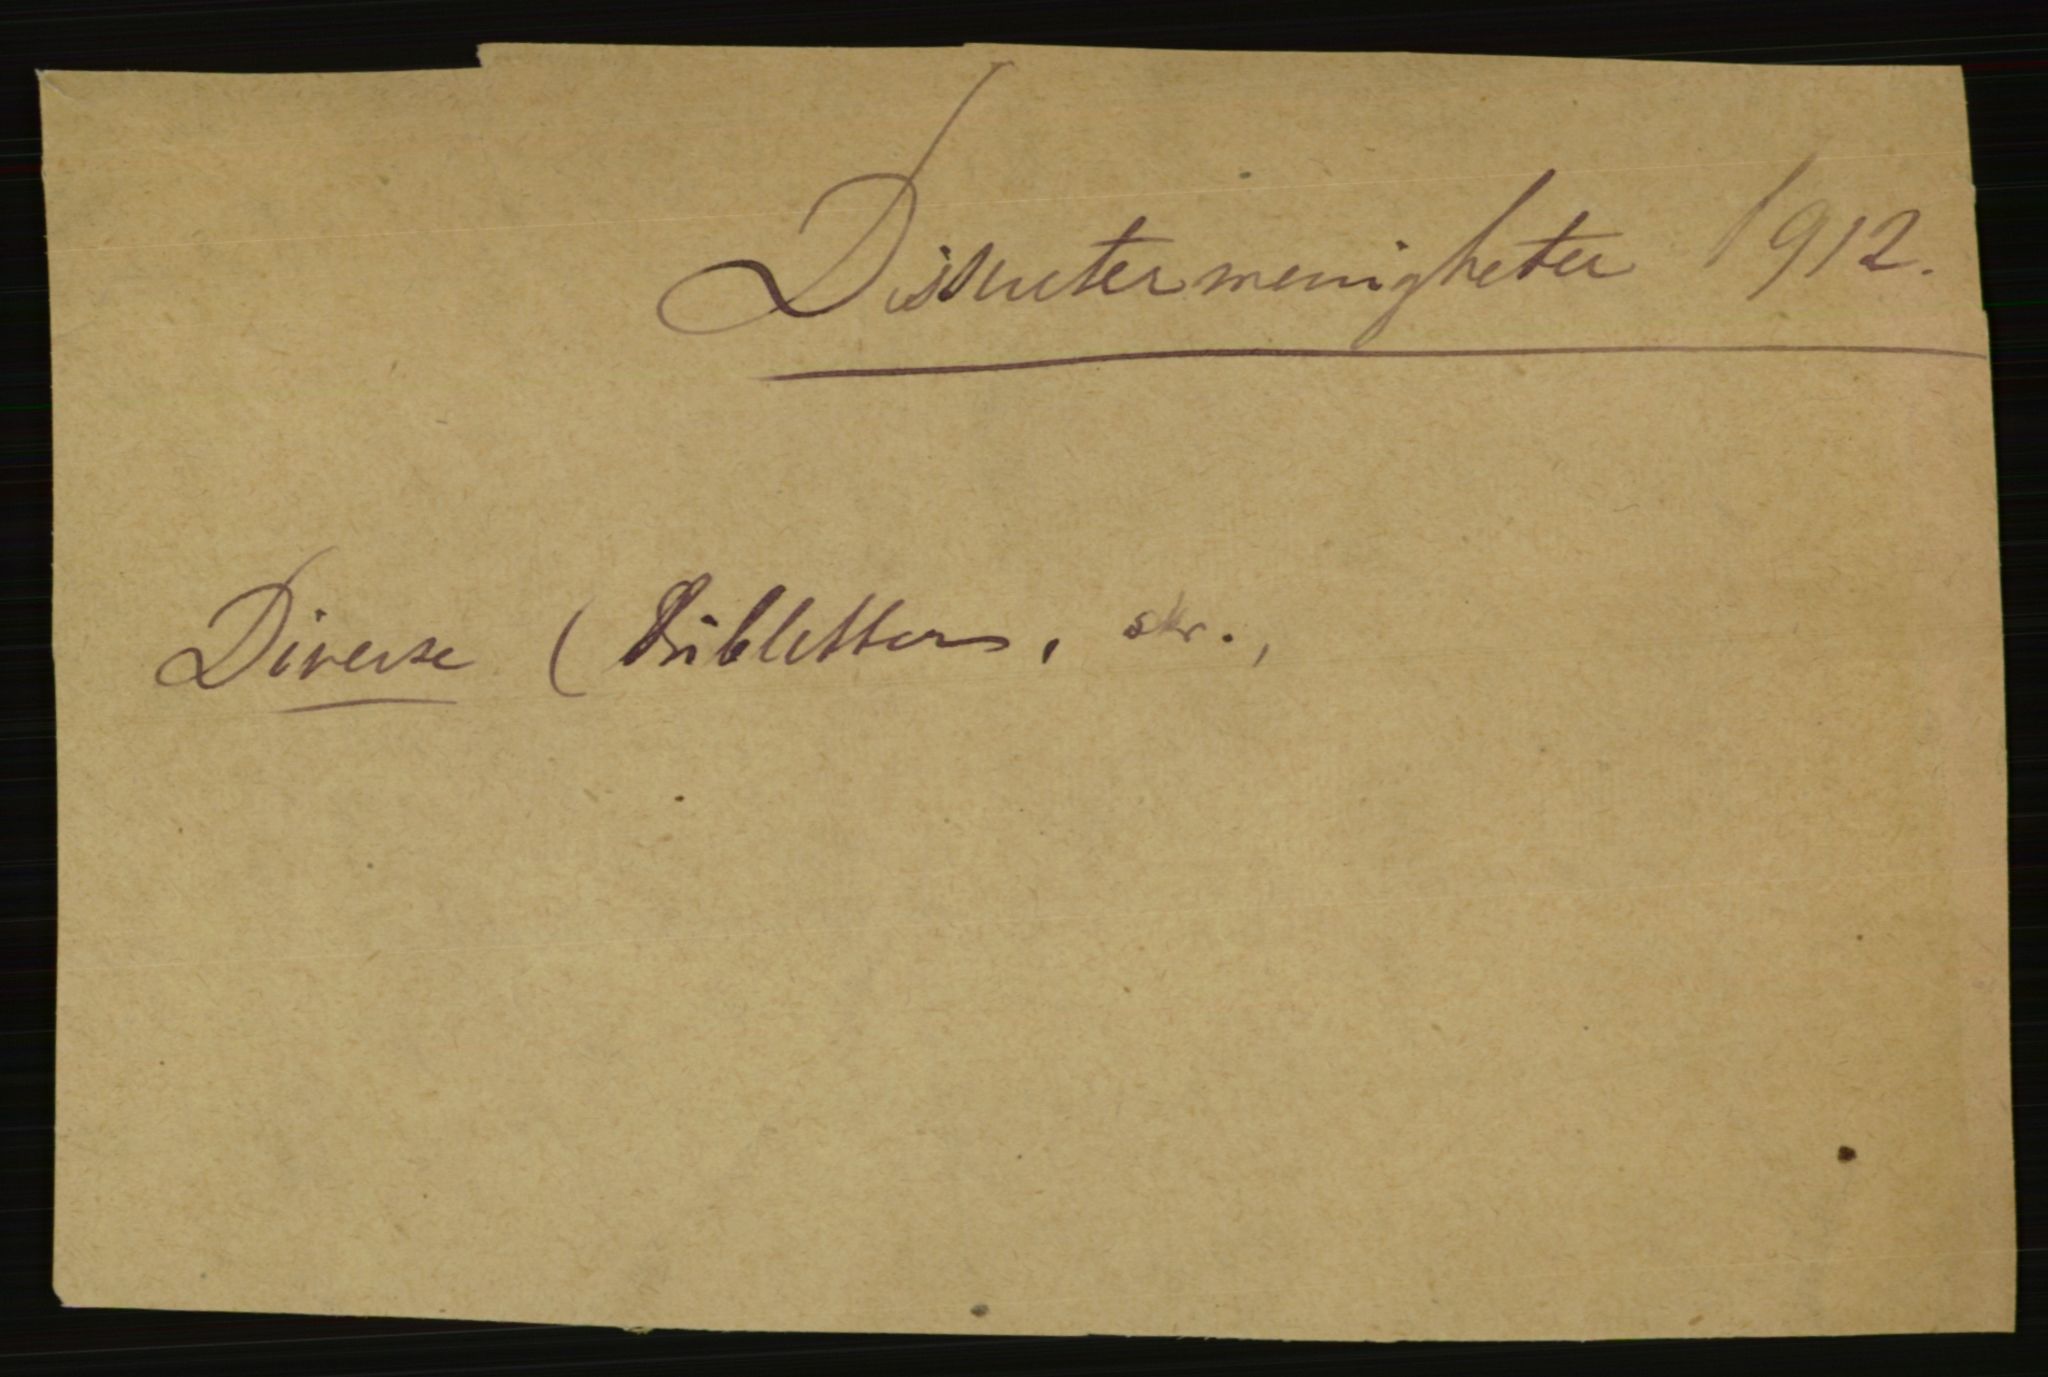 Dissentermenigheter 1912.
Diverse (Dubletter, skr.,